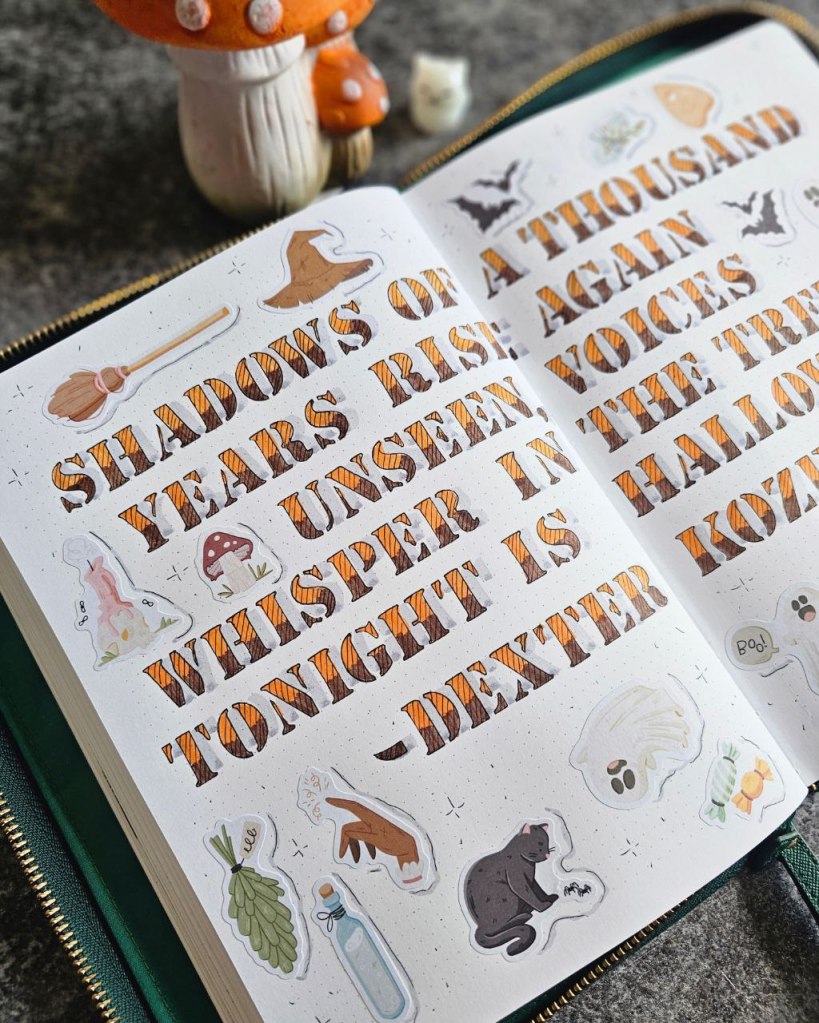 SHADOWS OF A THOUSAND
YEARS RISE AGAIN
UNSEEN, VOICES
WHISPER IN THE TREE
TONIGHT IS HALLOW
-DEXTER KOZ
BOO!